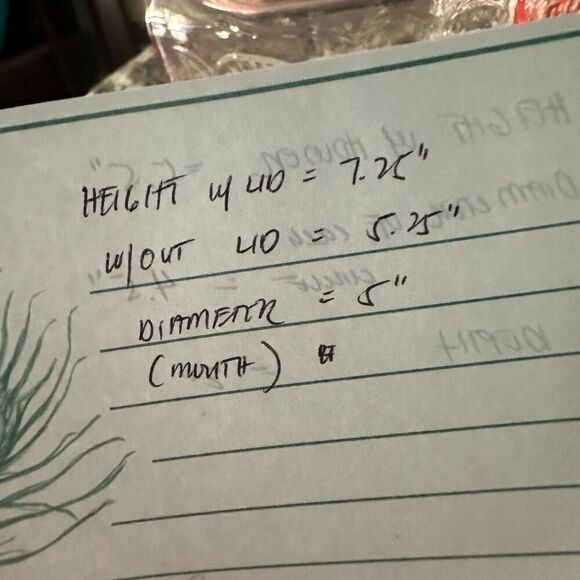 HEIGHT W/ LID = 7.25"
W/OUT LID = 5.25"
DIAMETER = 5"
(MOUTH)